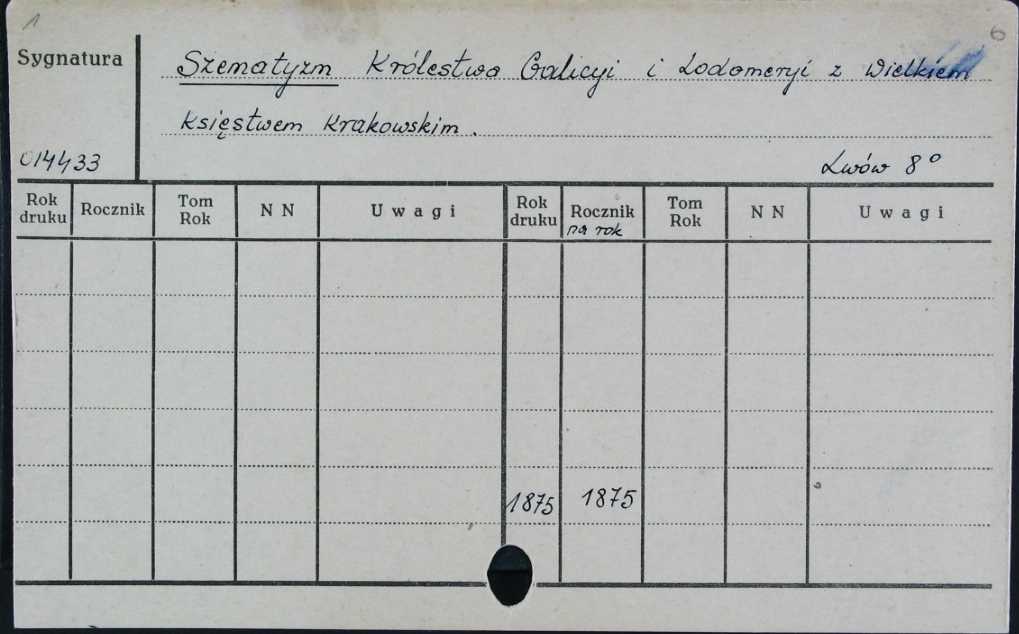 1
6
Sygnatura
Szematyzm Królestwa Galicyi i Lodomeryi z Wielkiem
Księstwem Krakowskim.
014433
Lwów 8°
Rok druku Rocznik Tom Rok N N Uwagi Rok druku Rocznik na rok Tom Rok N N Uwagi
1875 1875